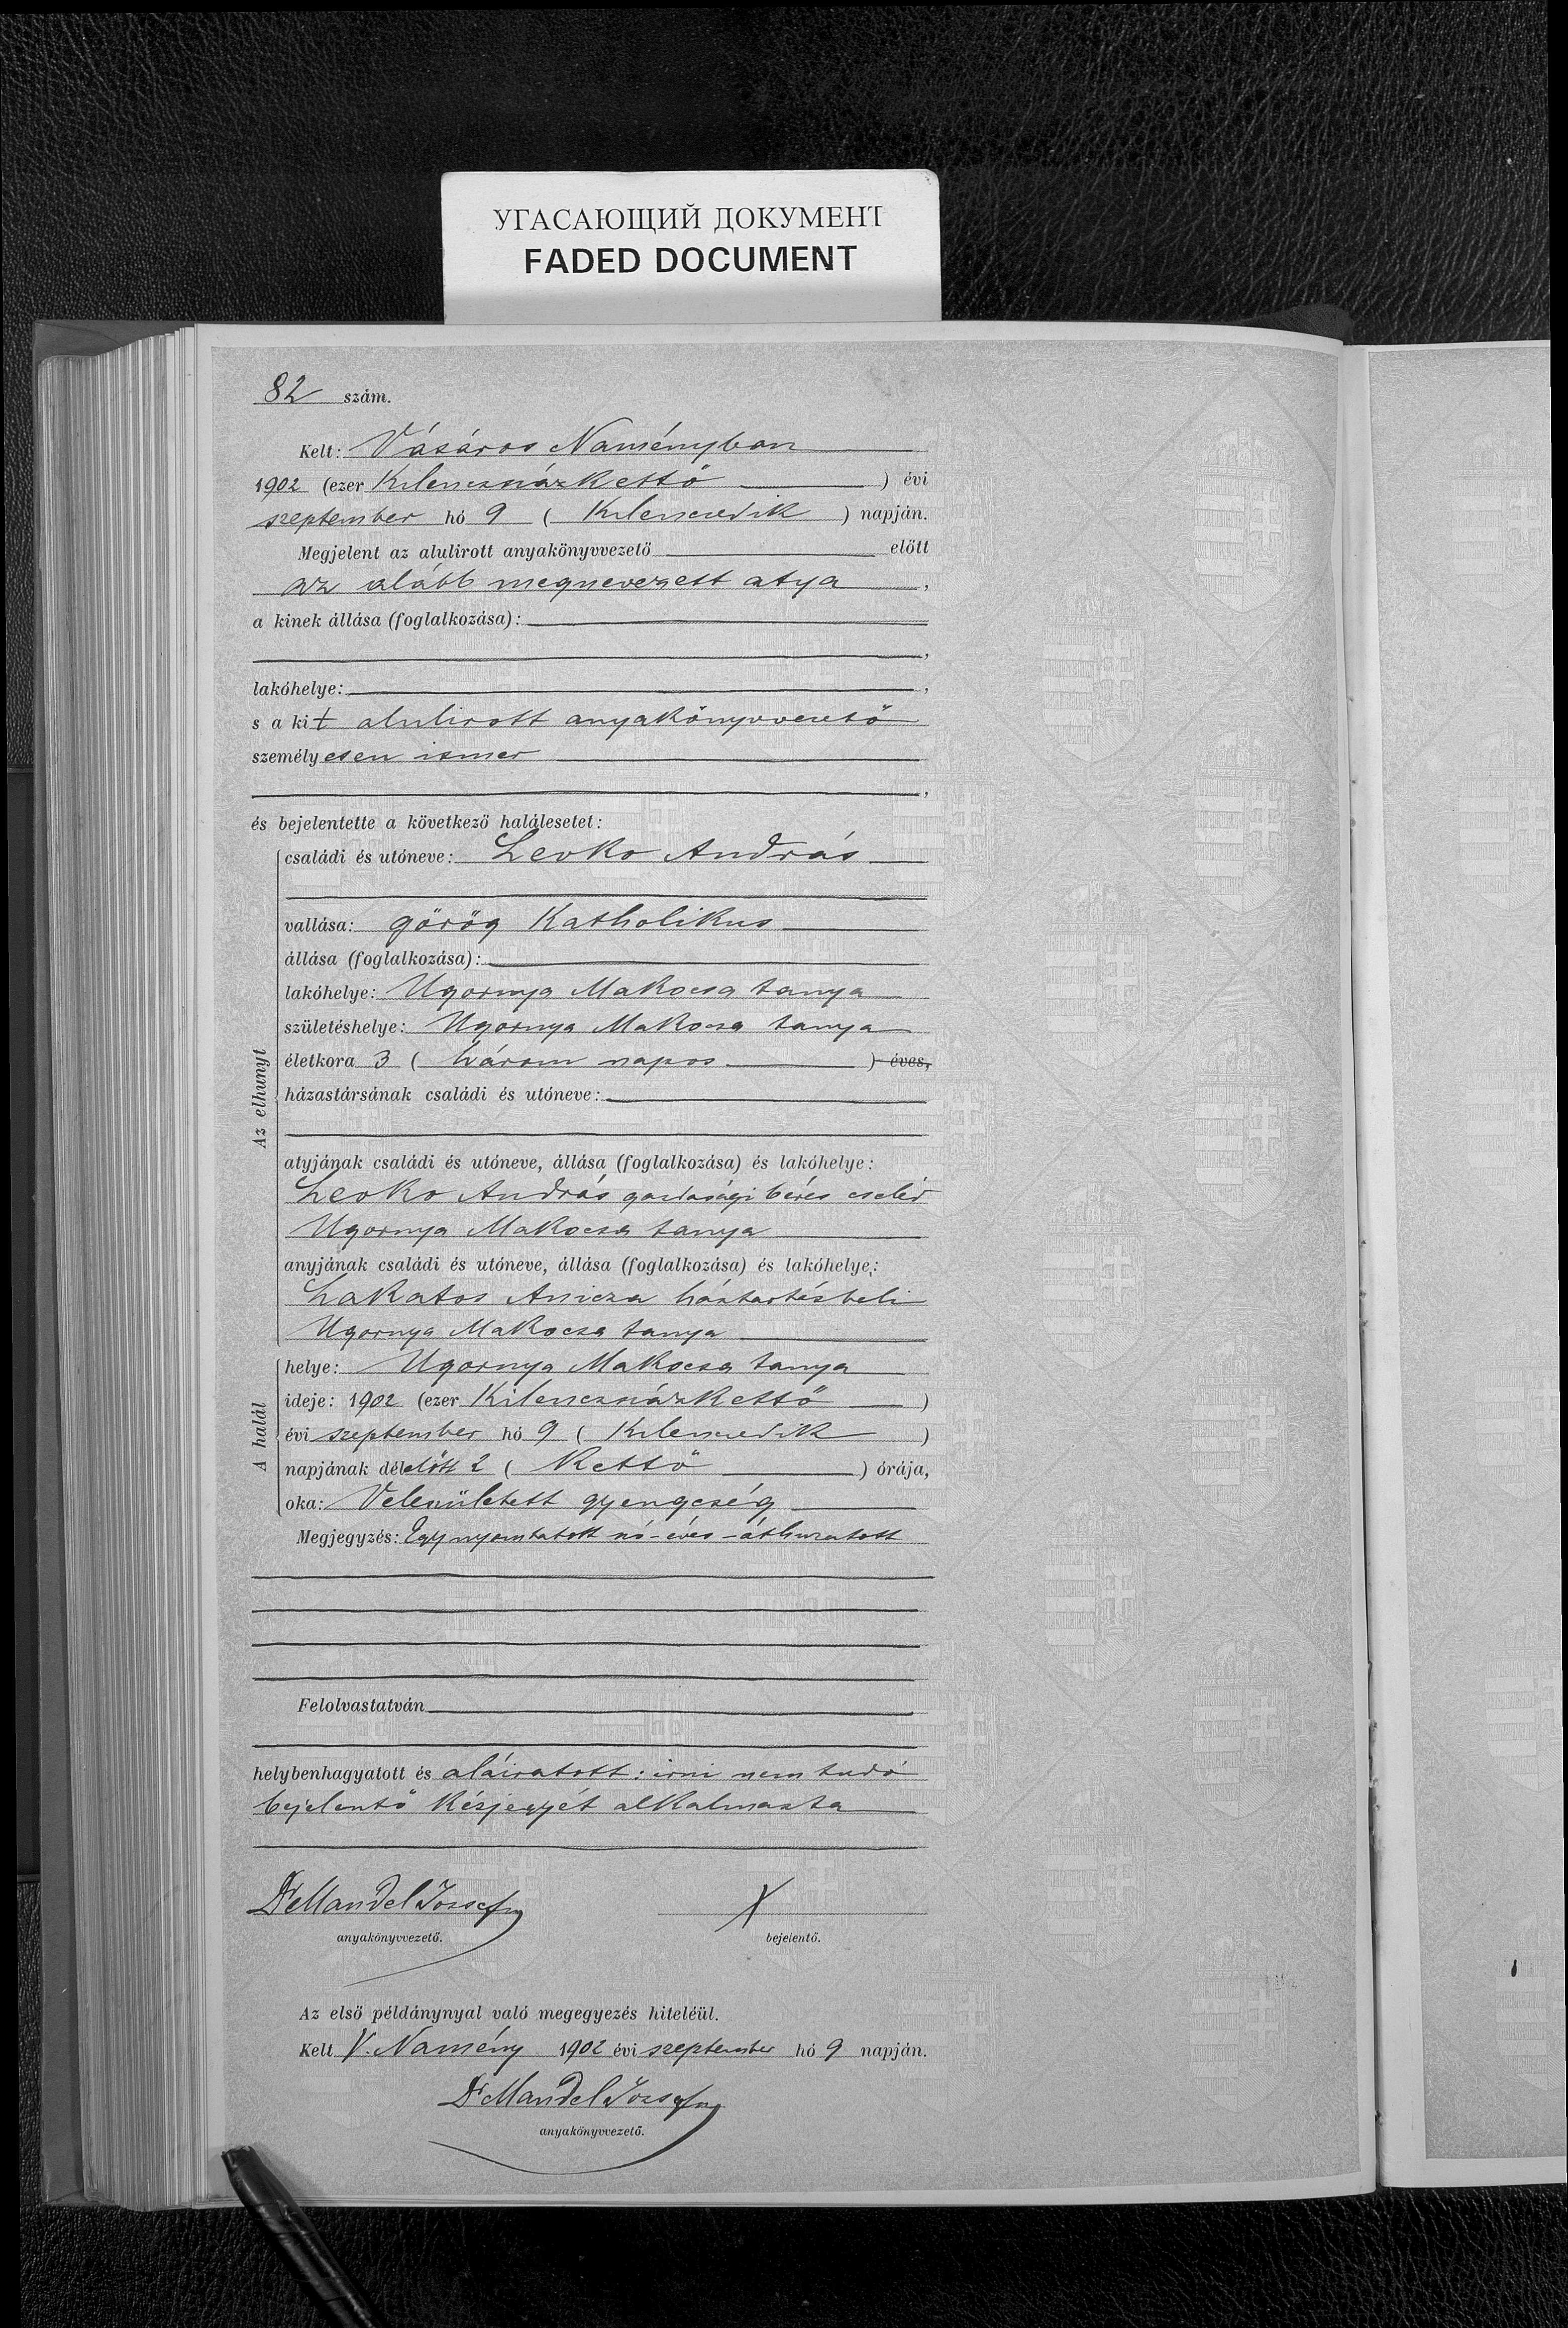 УГАСАЮЩИЙ ДОКУМЕНТ
FADED DOCUMENT
82 szám.
Kelt: Vásáros Naményban
1902 (ezer Kilenczszázkettő ) évi
szeptember hó 9 ( Kilenczedik ) napján.
Megjelent az alulirott anyakönyvvezető előtt
az alább megnevezett atya ,
a kinek állása (foglalkozása):
,
lakóhelye: ,
s a kit alulirott anyakönyvvezető
személyesen ismer
,
és bejelentette a következő halálesetet:
Az elhunyt
családi és utóneve: Levko András
vallása: görög Katholikus
állása (foglalkozása):
lakóhelye: Ugornya Makocsa tanya
születéshelye: Ugornya Makocsa tanya
életkora 3 ( három napos ) éves,
házastársának családi és utóneve:
atyjának családi és utóneve, állása (foglalkozása) és lakóhelye:
Levko András gazdasági béres cseléd
Ugornya Makocsa tanya
anyjának családi és utóneve, állása (foglalkozása) és lakóhelye:
Lakatos Anicza háztartásbeli
Ugornya Makocsa tanya
A halál
helye: Ugornya Makocsa tanya
ideje: 1902 (ezer Kilenczszázkettő )
évi szeptember hó 9 ( Kilenczedik )
napjának délelőtt 2 ( Kettő ) órája,
oka: Veleszületett gyengeség
Megjegyzés: Egy nyomtatott szó-éves-áthuzatott
Felolvastatván
helybenhagyatott és aláiratott: irni nem tudó
bejelentő kézjegyét alkalmazta
Dr Mandel József X
anyakönyvvezető. bejelentő.
Az első példánynyal való megegyezés hiteléül.
Kelt V. Namény 1902 évi szeptember hó 9 napján.
Dr Mandel József
anyakönyvvezető.